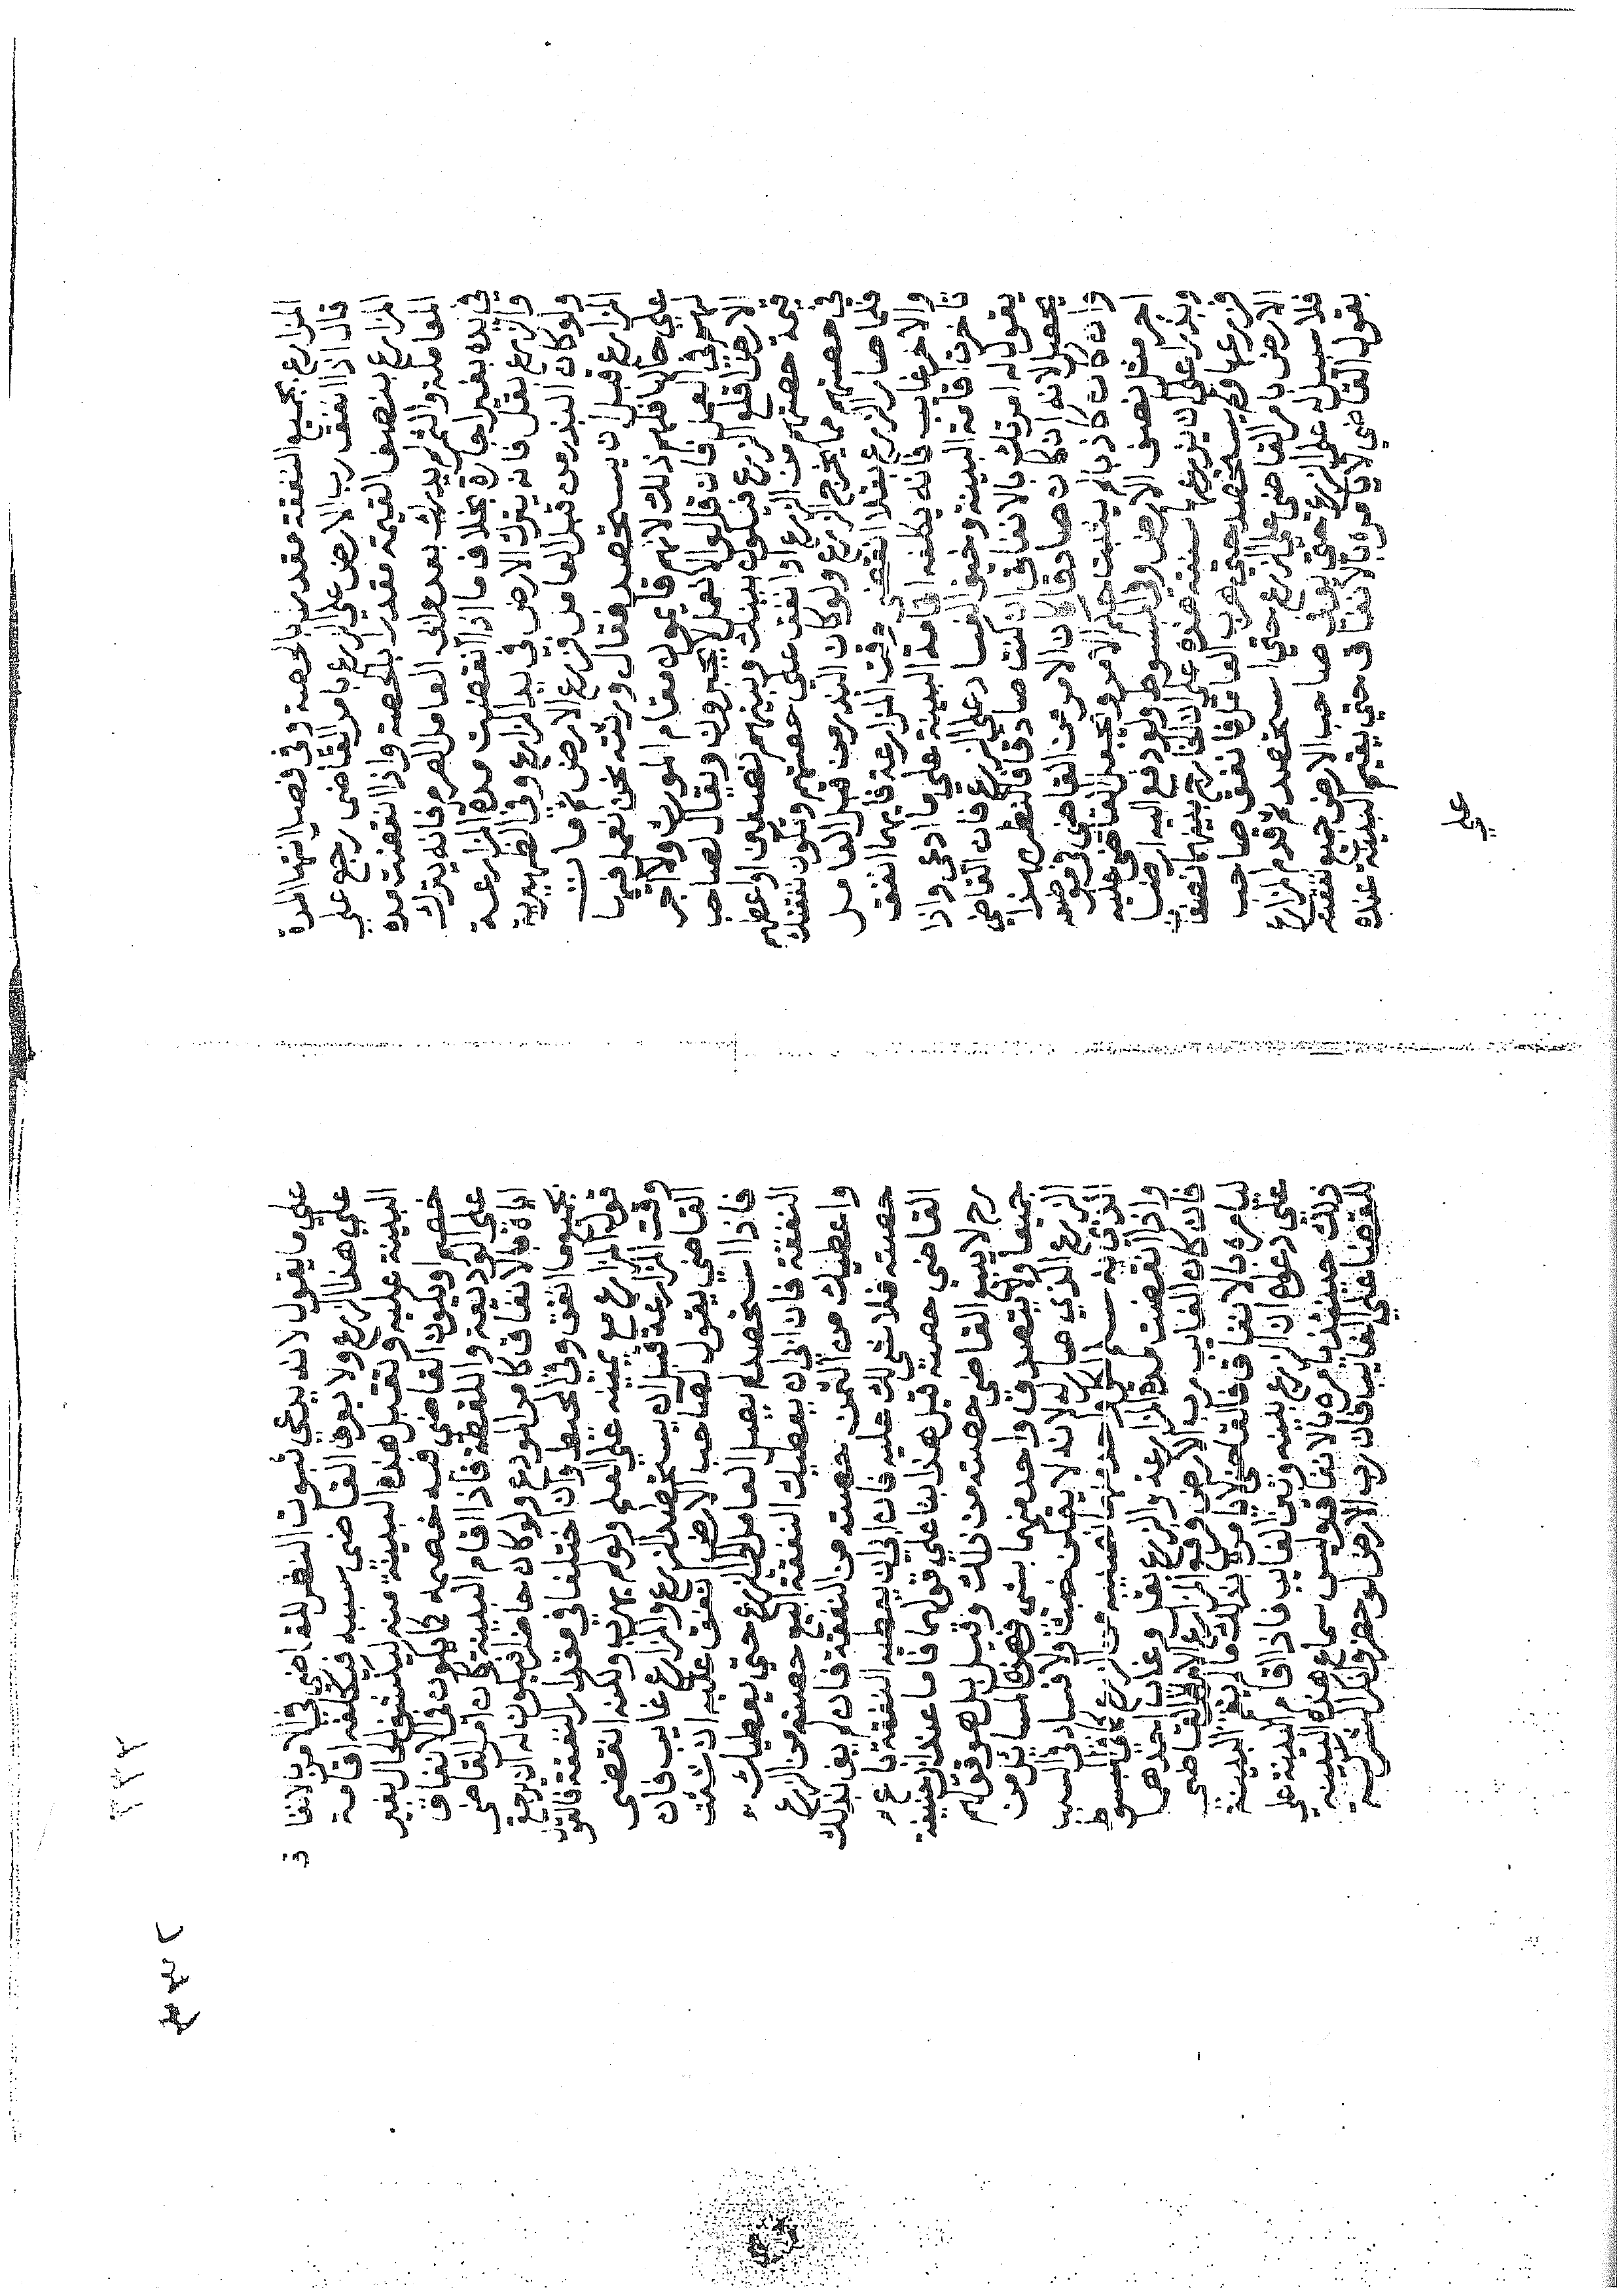 المزارع بجميع النفقة مقدرا بالحصة وفي فصل انتها المدة
قال اذا انفق رب الارض علي الزرع بامر القاضي رجع علي
المزارع بنصف القيمة مقدرا بالحصة واذا انقضت مدة
المعاملة والثمر لم يدرك بعد وابي العامل الصرم فانه يترك
في يده بغير اجارة بخلاف ما اذا انقضت مدة المزارعة
والزرع بقل فانه يترك الارض في يد المزارع وفي الظهيرية
ولو كان البذر من قبل العامل فزرع الارض ثم مات
المزارع قبل ان يستحصد فقال ورثته نحن نعمل فيها
علي حالها فلهم ذلك لانهم قايمون مقام المورث ولا اجر
لهم في العمل فان قالوا لا نعمل لا يجبرون ويقال لصاحب
الارض اقلع الزرع فيكون بينك وبينهم نصفين او اعطهم
قيمة حصتهم من الزرع او انفق علي حصتهم وتكون نفقتك
في حصتهم مما يخرج الزرع ولو كان البذر من قبل العامل
فلما صار الزرع بقلا انقضي وقت المزارعة فايهما انفق
والاخر غايب فانه يكلفه اقامة البينة علي ما ادعي واذا
تاخرت اقامة البينة وخيف الفساد علي الزرع فان القاضي
يقول له امرتك بالانفاق ان كنت صادقا فالنظر بهذا
يحصل لانه ان كان صادقا كان الامر من القاضي في موضعه
وان كان كاذبا لم يثبت حكم الامر ويجعل القاضي عليه
اجر مثل نصف الارض وفي المبسوط ولو دفع اليه ارضا
وبذرا علي ان يزرعها سنته هذه علي ان الخارج بينهما نصفان
فزرعها ولم يستحصد حتي هرب العامل فانفق صاحب
الارض بامر القاضي علي الزرع حتي استحصد ثم قدم المزارع
فلا سبيل له علي الزرع حتي يوفي صاحب الارض جميع نفقته
يقول القاضي لا يامره بالانفاق حتي يقيم البينة عنده
علي
علي ما يقول لانه يدعي ثبوت النظر للقاضي في الامر بالانفا ق
علي هذا الزرع ولا يعرف القاضي سببه فيكلفه اقامة
البينة عليه وتقبل هذه البينة منه ليكشف الحال بغير
خصم او يكون القاضي فيه خصمه كما يكون في الانفاق
علي الوديعة واللقطة فاذا اقام البينة كان امر القاضي
اياه بالانفاق كامر المودع ولو كان حاضرا فيكون له ان يرجع
بجميع ما انفق وفي المحيط وان اختلفا في مقدار النفقة فالقول
قول المزارع مع يمينه علي العلم ولو لم يهرب ولكنه انقضي
وقت المزارعة قبل ان يستحصد الزرع والمزارع غايب فان
القاضي يقول لصاحب الارض انفق عليه ان شئت
فاذا استحصد لم يصل العامل الي الزرع حتي يعطيك
النفقة فان ابي ان يعطيك النفقة ابيع حصته من الزرع
واعطيك من الثمن حصته من النفقة فان لم يف بذلك
حصته فلا شي لك عليه فان ابي ان يعطيه النفقة باع
القاضي حصته قيل هذا بنا علي قولهما فاما عند ابي حنيفة
رح لا يبيع القاضي حصته من ذلك وقيل بل هو قولهم
جميعا ولا يتصدق واحد منهما بشي في هذه المسائل من
الزرع الذي صار له لانه لا يتمكن خبث ولا فساد في السبب
واذا انقضت مدة المزارعة والزرع بقل وغاب احدهما
فان كان الغايب رب الارض فرفع المزارع الامر الي القاضي
ليامره بالانفاق فالقاضي لا يامره بذلك ما لم يقم البينة
علي دعواه ان الزرع بينه وبين الغايب فاذا اقام البينة علي
ذلك حينئذ يامره بالانفاق وليس سماع هذه البينة
للقضا علي الغايب فان رب الارض لو حضر وانكر الشركة